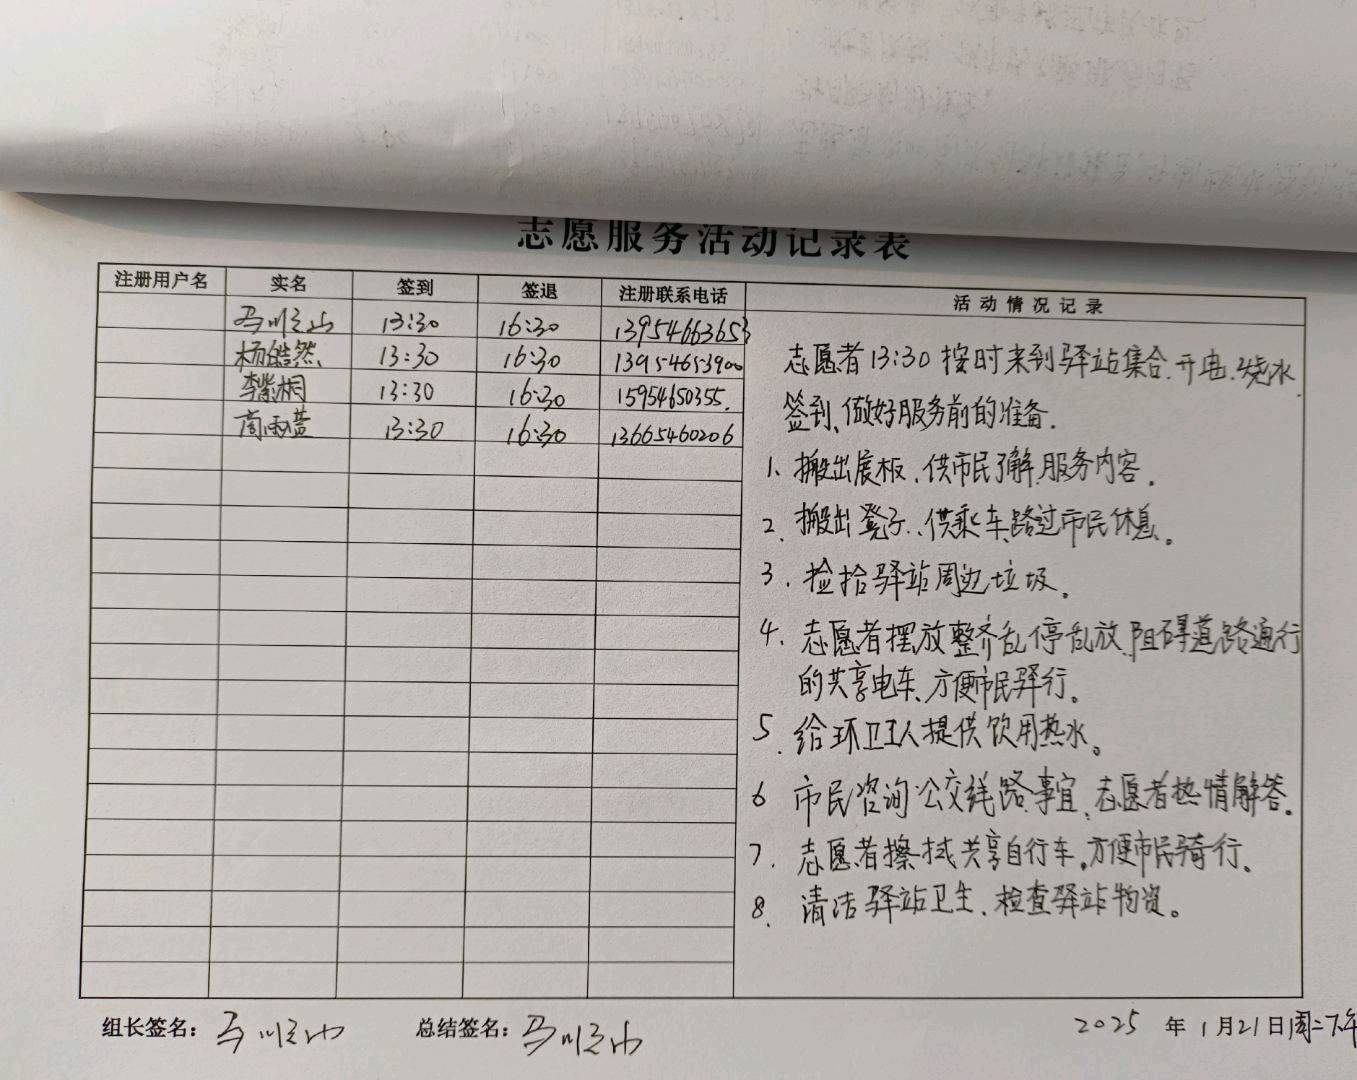 志愿服务活动记录表
注册用户名 实名 签到 签退 注册联系电话 活动情况记录
马顺山 13:30 16:30 13954663653
杨皓然 13:30 16:30 13954653900
李紫桐 13:30 16:30 15954650355.
商雨萱 13:30 16:30 13665460206
志愿者13:30按时来到驿站集合.开电.烧水
签到、做好服务前的准备.
1、搬出展板、供市民了解服务内容.
2、搬出凳子、供乘车、路过市民休息。
3.捡拾驿站周边垃圾。
4、志愿者摆放整齐乱停乱放、阻碍道路通行
的共享电车、方便市民骑行。
5.给环卫工人提供饮用热水。
6 市民咨询公交线路事宜、志愿者热情解答。
7.志愿者擦拭共享自行车,方便市民骑行。
8、清洁驿站卫生、检查驿站物资。
组长签名:马顺山 总结签名:马顺山 2025 年 1月21日周二下午